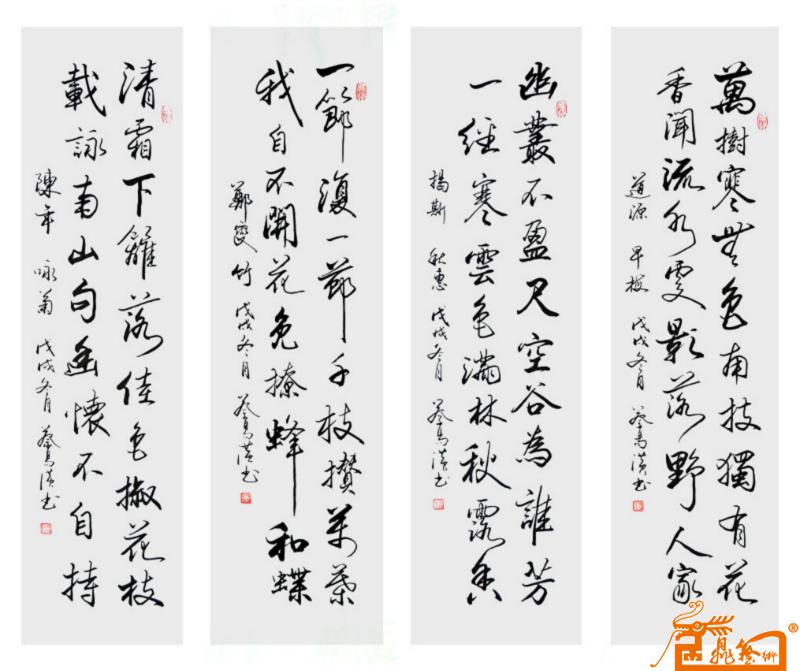 萬樹寒無色南枝獨有花
香聞流水處影落野人家
道源 早梅 戊戌冬月
幽叢不盈尺空谷為誰芳
一經寒雲色滿林秋露香
揭斯 秋惠 戊戌冬月
一節復一節千枝攢萬葉
我自不開花免撩蜂和蝶
鄭燮 竹 戊戌冬月
清霜下籬落佳色散花枝
載詠南山句幽懷不自持
陳年 咏菊 戊戌冬月